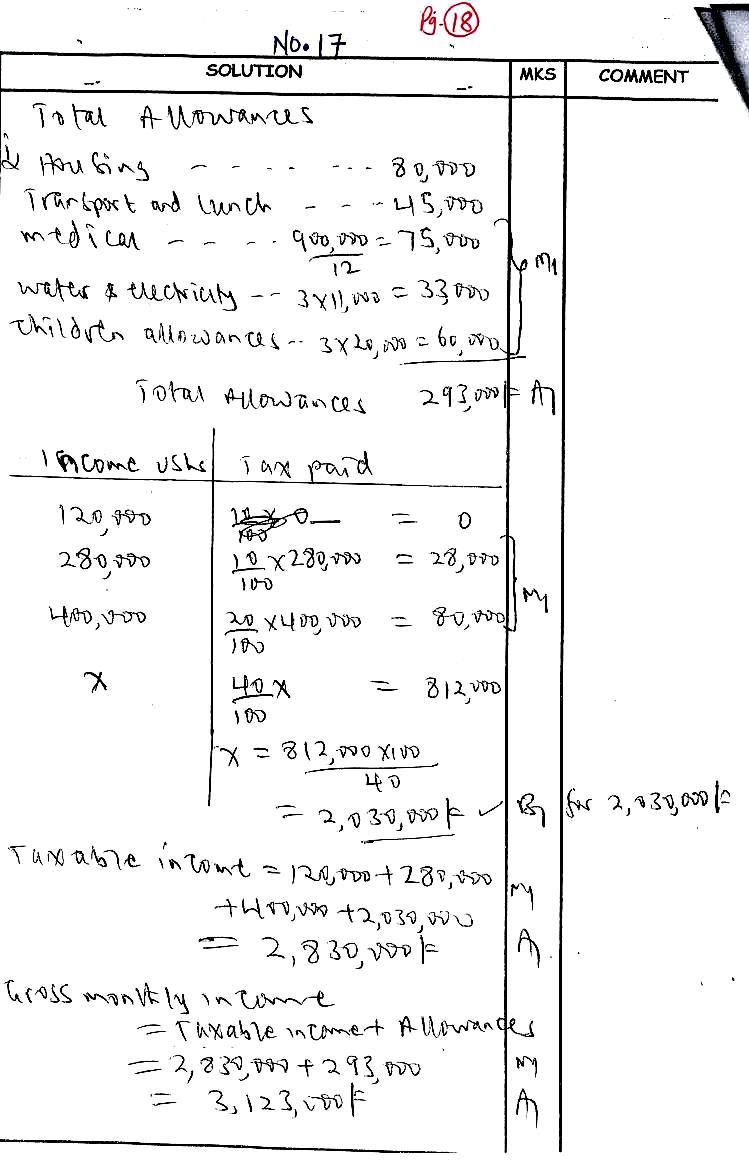 Pg. 18
No. 17
SOLUTION MKS COMMENT
Total Allowances
Housing - - - - - - - 80,000
Transport and lunch - - - 45,000
medical - - - - 900,000/12 = 75,000 M1
water & electricity -- 3x11,000 = 33,000
children allowances -- 3x20,000 = 60,000
Total Allowances 293,000/= A1
Income ushs Tax paid
120,000 = 0
280,000 10/100 x 280,000 = 28,000
400,000 20/100 x 400,000 = 80,000 M1
x 40/100 x = 812,000
x = 812,000 x100/40
= 2,030,000/= ✓ B1 for 2,030,000/=
Taxable income = 120,000 + 280,000
+400,000 + 2,030,000 M1
= 2,830,000/= A1
Gross monthly income
= Taxable income + Allowances
= 2,830,000 + 293,000 M1
= 3,123,000/= A1